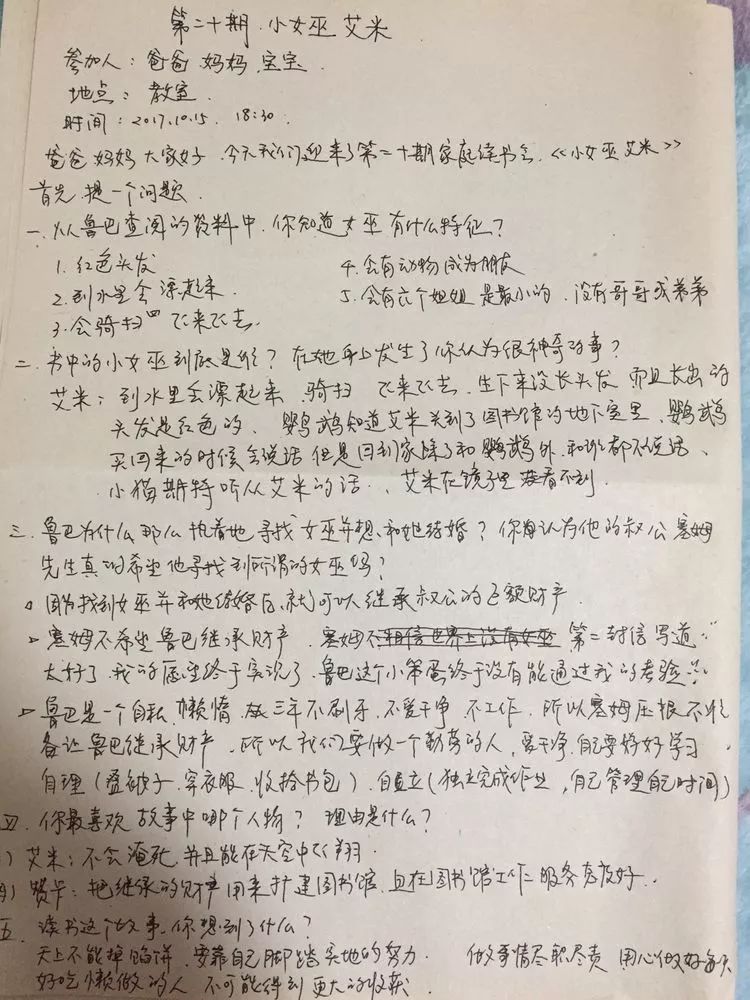 第二十期.小女巫艾米
参加人：爸爸.妈妈.宝宝.
地点：教室.
时间：2017.10.15. 18:30.
爸爸妈妈大家好.今天我们迎来了第二十期家庭读书会.《小女巫艾米》
首先.提一个问题.
一.从鲁巴查阅的资料中.你知道女巫有什么特征？
1.红色头发 4.会有动物成为朋友
2.到水里会漂起来. 5.会有六个姐姐是最小的.没有哥哥或弟弟
3.会骑扫 飞来飞去.
二.书中的小女巫到底是谁？在她身上发生了你认为很神奇的事？
艾米：到水里会漂起来.骑扫 飞来飞去.生下来没长头发.而且长出的
头发是红色的、鹦鹉知道艾米关到了图书馆的地下室里、鹦鹉
买回来的时候会说话但是回到家除了和鹦鹉外.和谁都不说话、
小猫斯特听从艾米的话、艾米在镜子里看不到.
三.鲁巴为什么那么执着地寻找女巫并想和她结婚？你认为他的叔公塞姆
先生真的希望他寻找到所谓的女巫吗？
因为找到女巫并和她结婚后.就可以继承叔公的巨额财产.
塞姆不希望鲁巴继承财产.塞姆不相信世界上没有女巫 第二封信写道：“
太好了.我的愿望终于实现了.鲁巴这个小笨蛋终于没有能通过我的考验”.
鲁巴是一个自私.懒惰.三年不刷牙.不爱干净.不工作.所以塞姆压根不
让鲁巴继承财产.所以我们要做一个勤劳的人.爱干净.自己要好好学习
自理（叠被子.穿衣服.收拾书包）.自立（独立完成作业，自己管理自己时间）
四.你最喜欢故事中哪个人物？理由是什么？
艾米：不会淹死.并且能在天空中飞翔.
费卡：把继承的财产用来扩建图书馆.且在图书馆工作.服务态度好.
五.读书这个故事.你想到了什么？
天上不能掉馅饼.要靠自己脚踏实地的努力. 做事情尽职尽责 用心做好每
好吃懒做的人.不可能得到更大的收获.